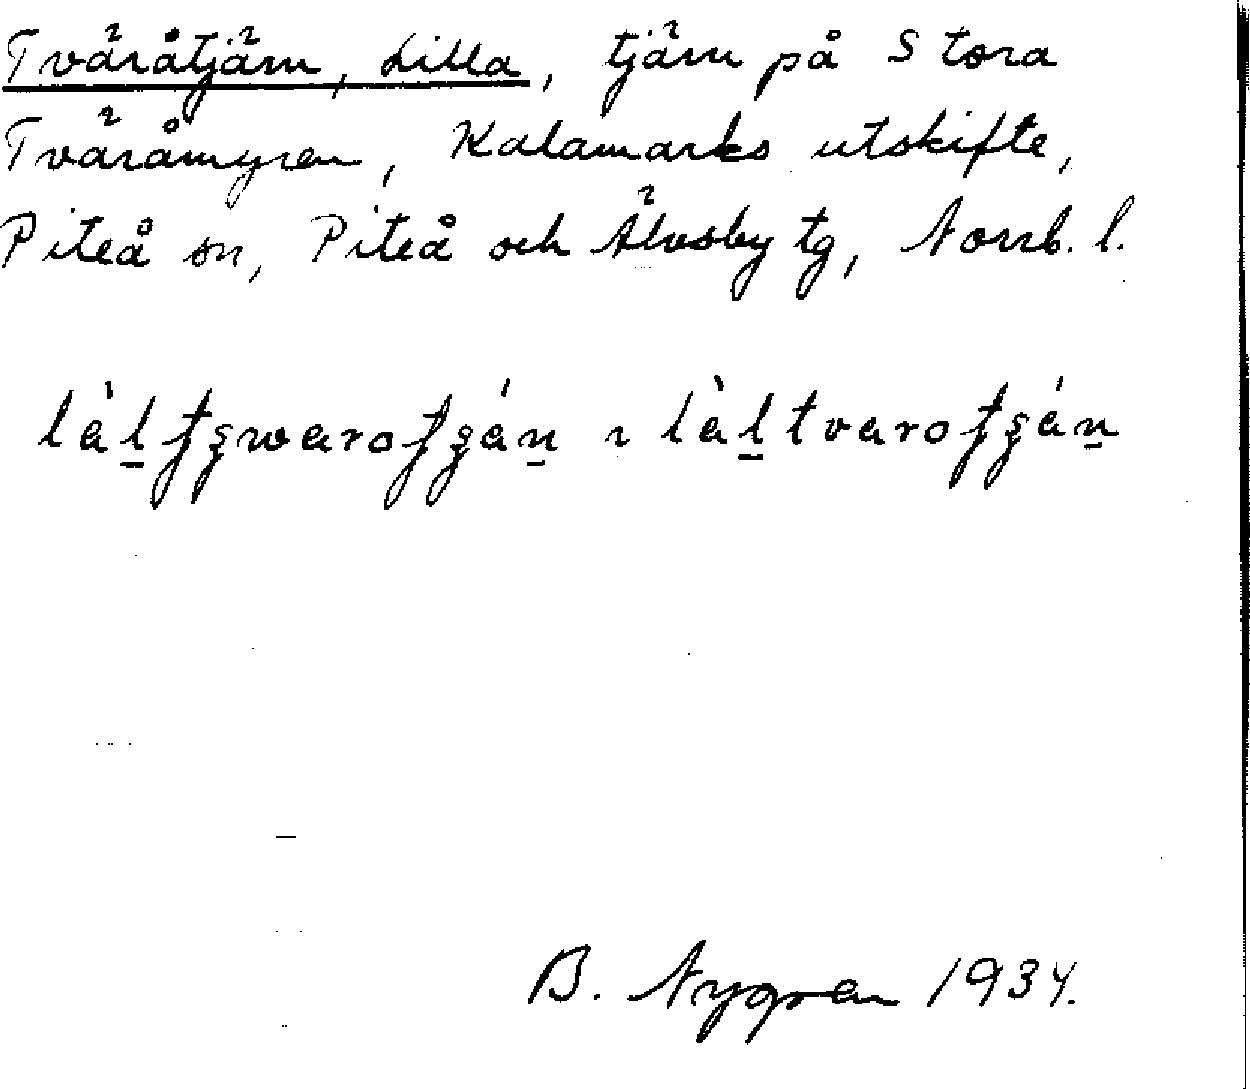 Tväråtjärn, Lilla, tjärn på Stora
Tväråmyren, Kalamarks utskifte,
Piteå sn, Piteå och Älvsby tg, Norrb. l.
B. Nygren 1934.